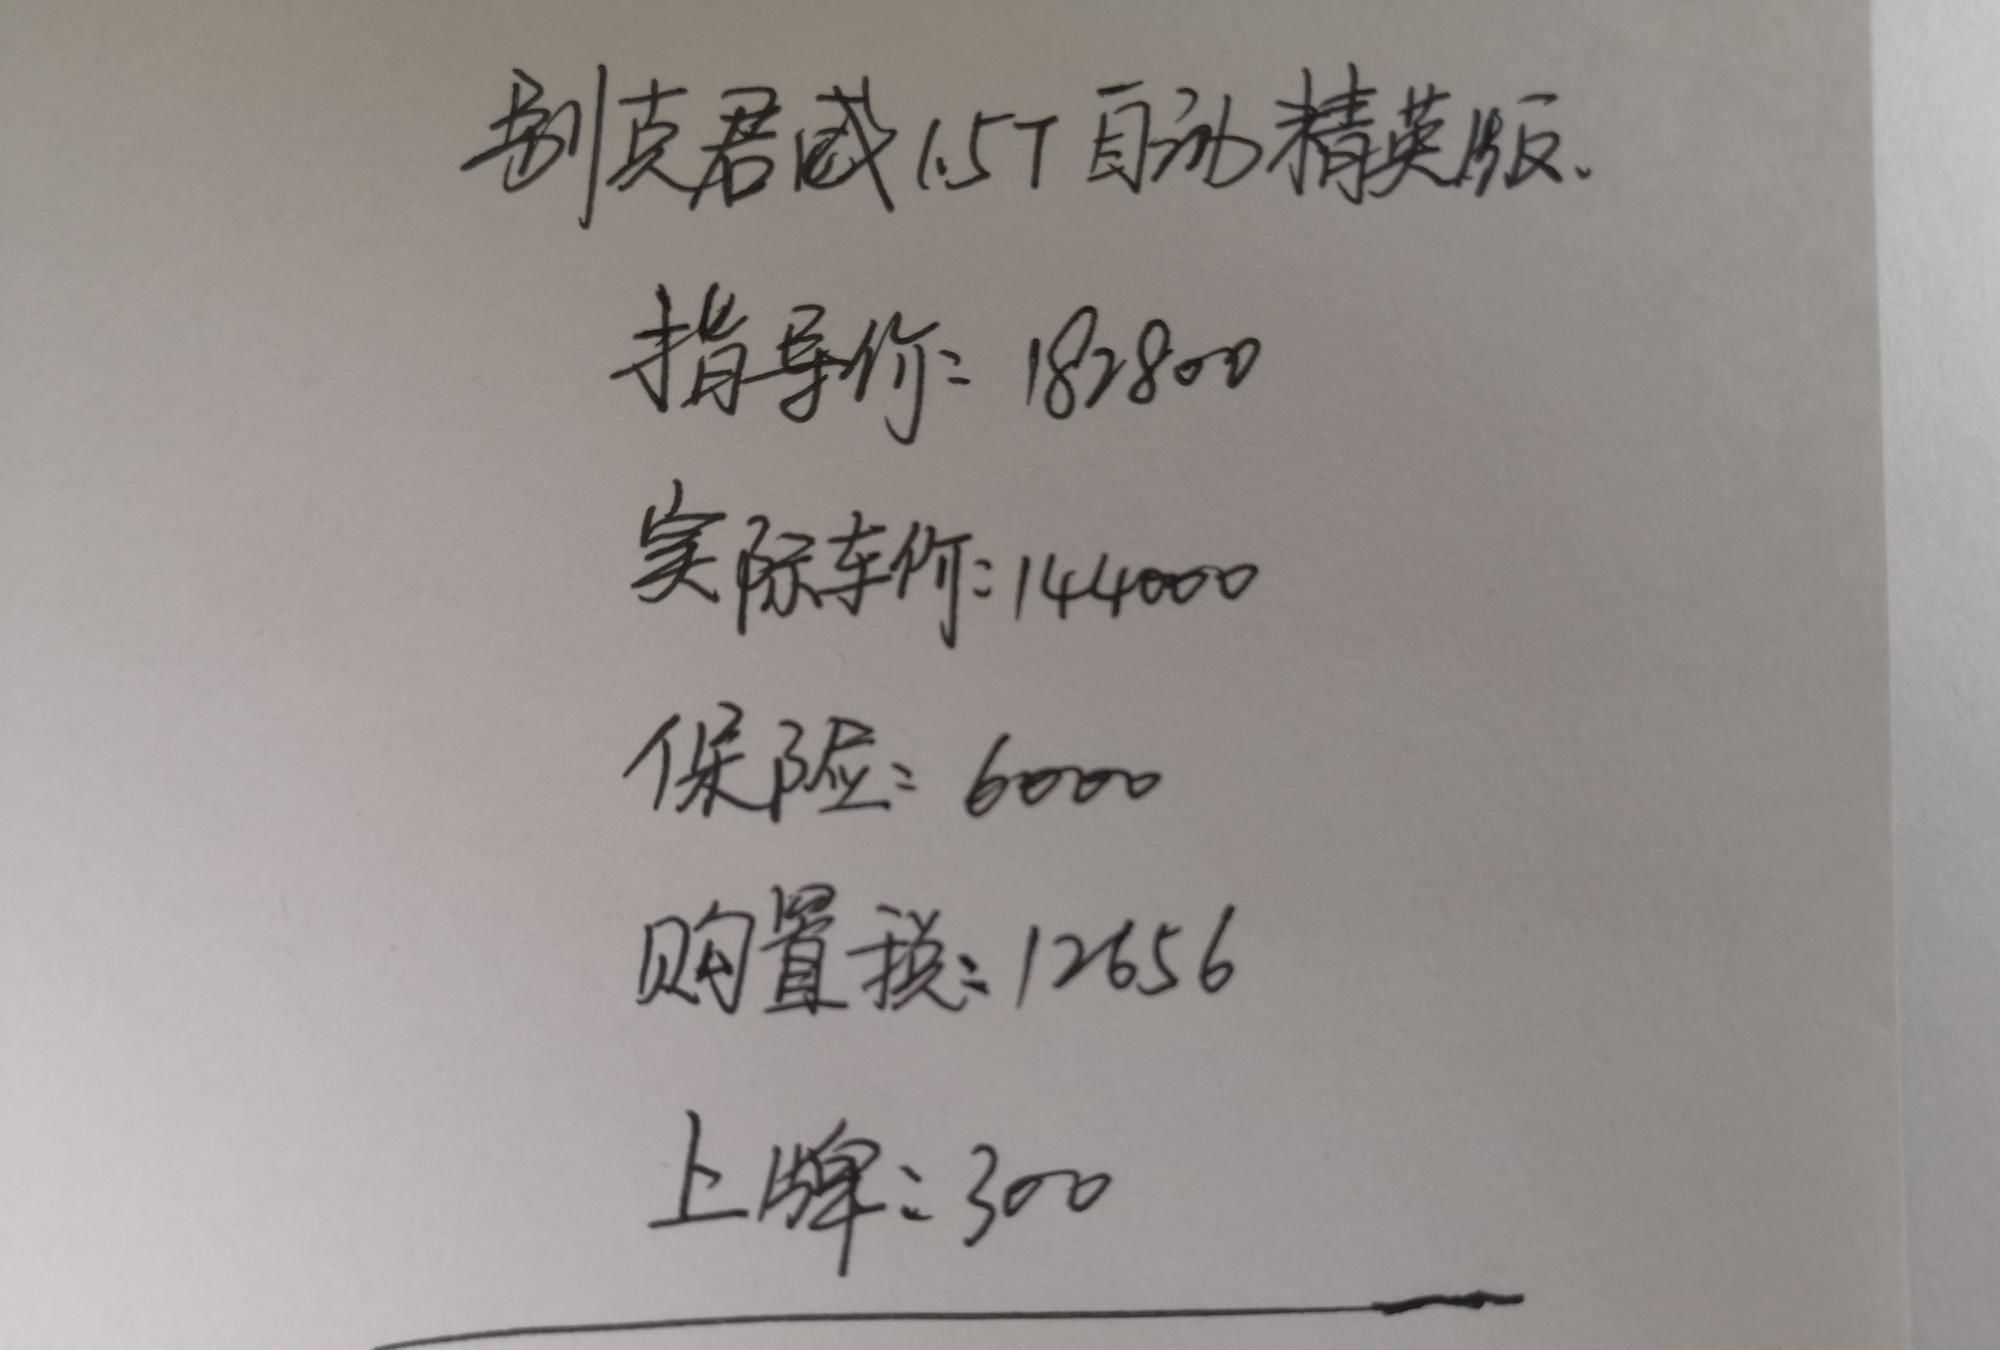 别克君威1.5T自动精英版.
指导价: 182800
实际车价: 144000
保险: 6000
购置税: 12656
上牌: 300